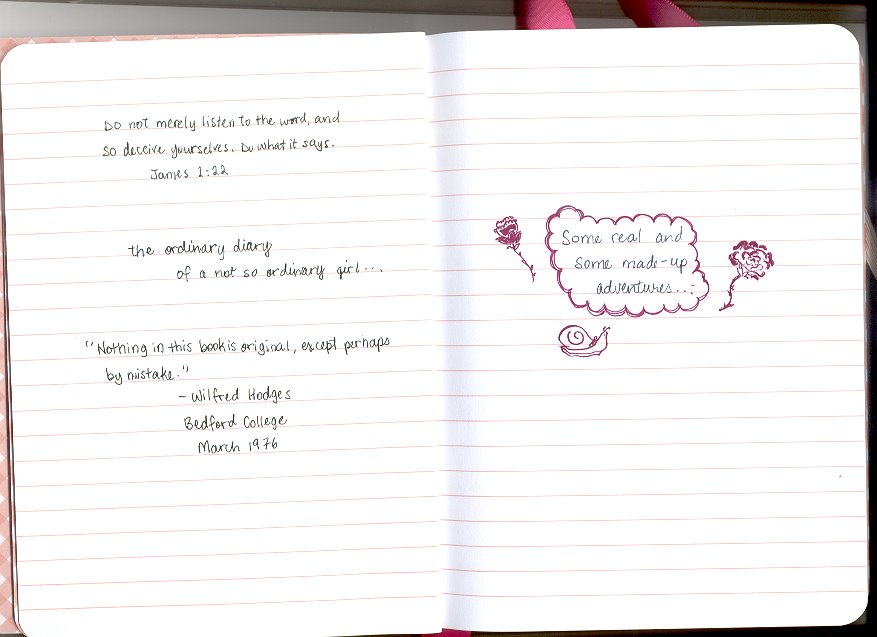 Do not merely listen to the word, and
so deceive yourselves. Do what it says.
James 1:22
the ordinary diary
of a not so ordinary girl...
"Nothing in this book is original, except perhaps
by mistake."
- Wilfred Hodges
Bedford College
March 1976
Some real and
some made-up
adventures...